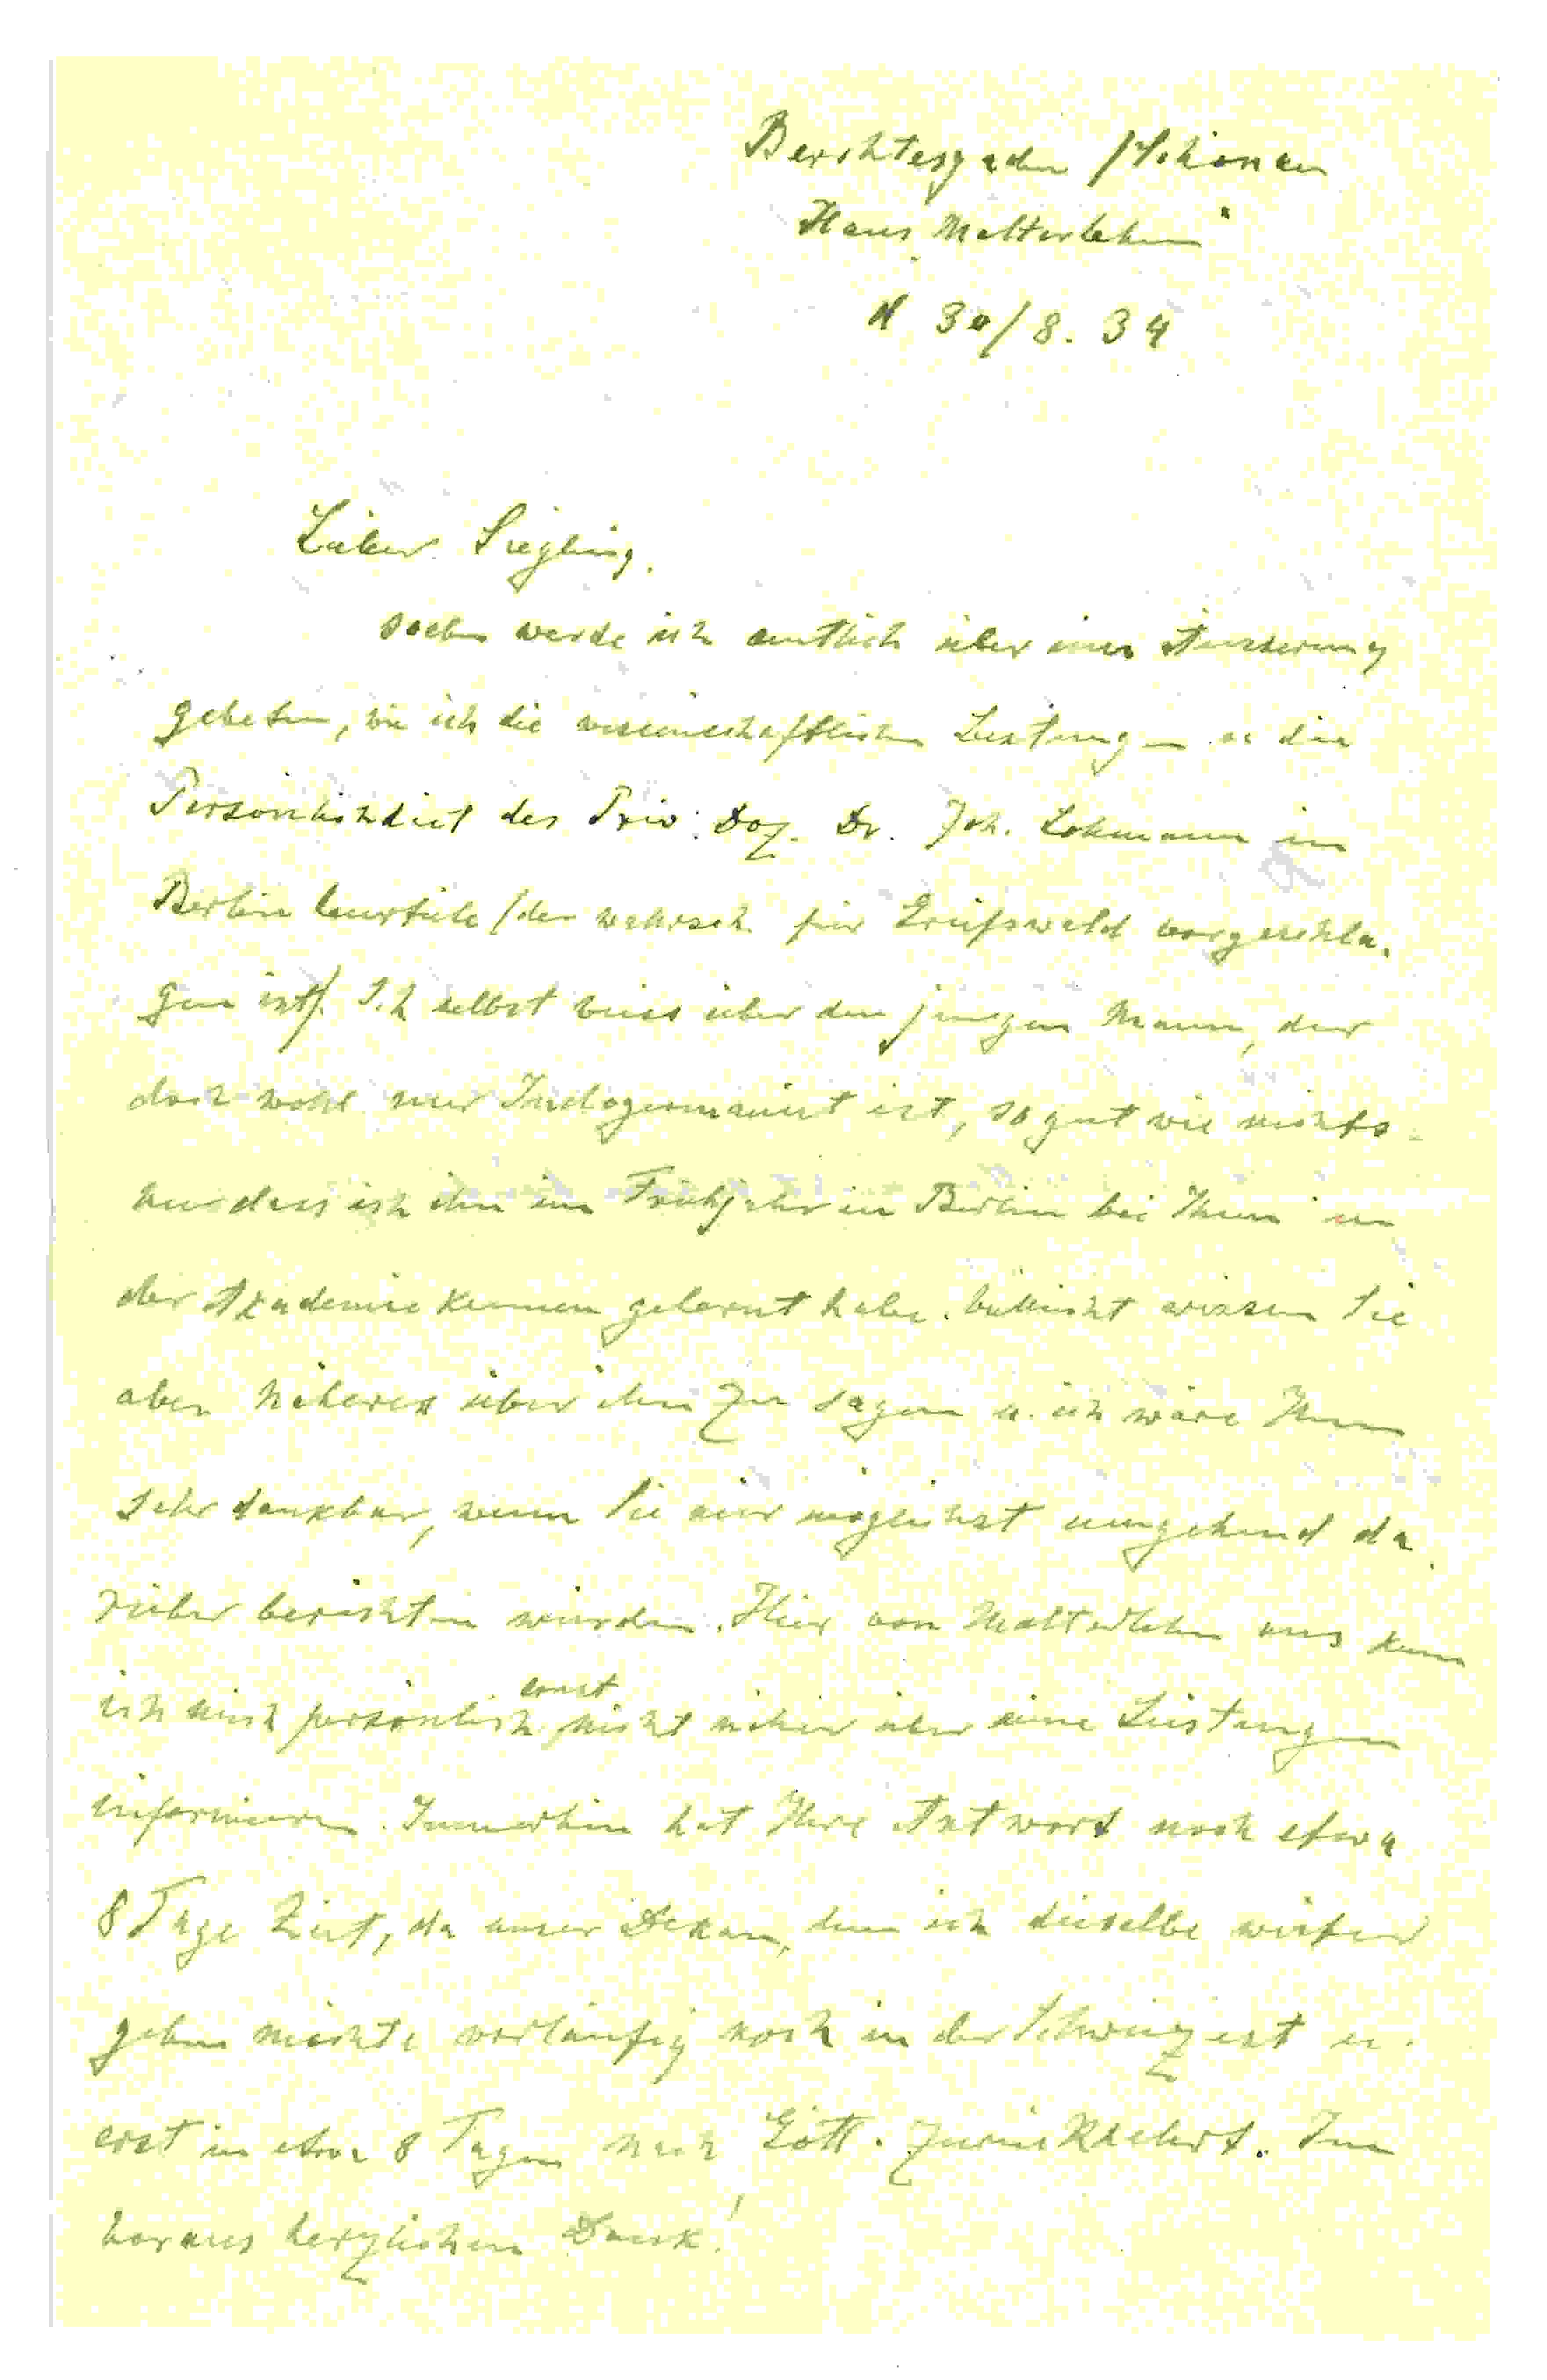 Berchtesgaden /Schönau
Haus „Malterlehen“
d 30/8. 34
Lieber Siegling.
soeben werde ich amtlich über eine Äusserung
gebeten, wie ich die wissenschaftlichen Leistungen u die
Persönlichkeit des Priv. Doz. Dr. Joh. Lohmann in
Berlin beurteile (der wahrsch. für Greifswald vorgeschla-
gen ist). Ich selbst weiss über den jungen Mann, der
doch wohl nur Indogermanist ist, so gut wie nichts
nur dass ich ihn im Frühjahr in Berlin bei Ihnen in
der Akademie kennen gelernt habe. Vielleicht wissen Sie
aber näheres über ihn zu sagen u. ich wäre Ihnen
sehr dankbar, wenn Sie mir möglichst umgehend da-
rüber berichten würden. Hier von Malterlehen aus kann
ich mich persönlich sonst nicht näher über seine Leistungen
informieren. Immerhin hat Ihre Antwort noch etwa
8 Tage Zeit, da unser Dekan, dem ich dieselbe weiter
geben möchte vorläufig noch in der Schweiz ist u.
erst in etwa 8 Tagen nach Gött. zurückkehrt. Im
voraus herzlichen Dank!